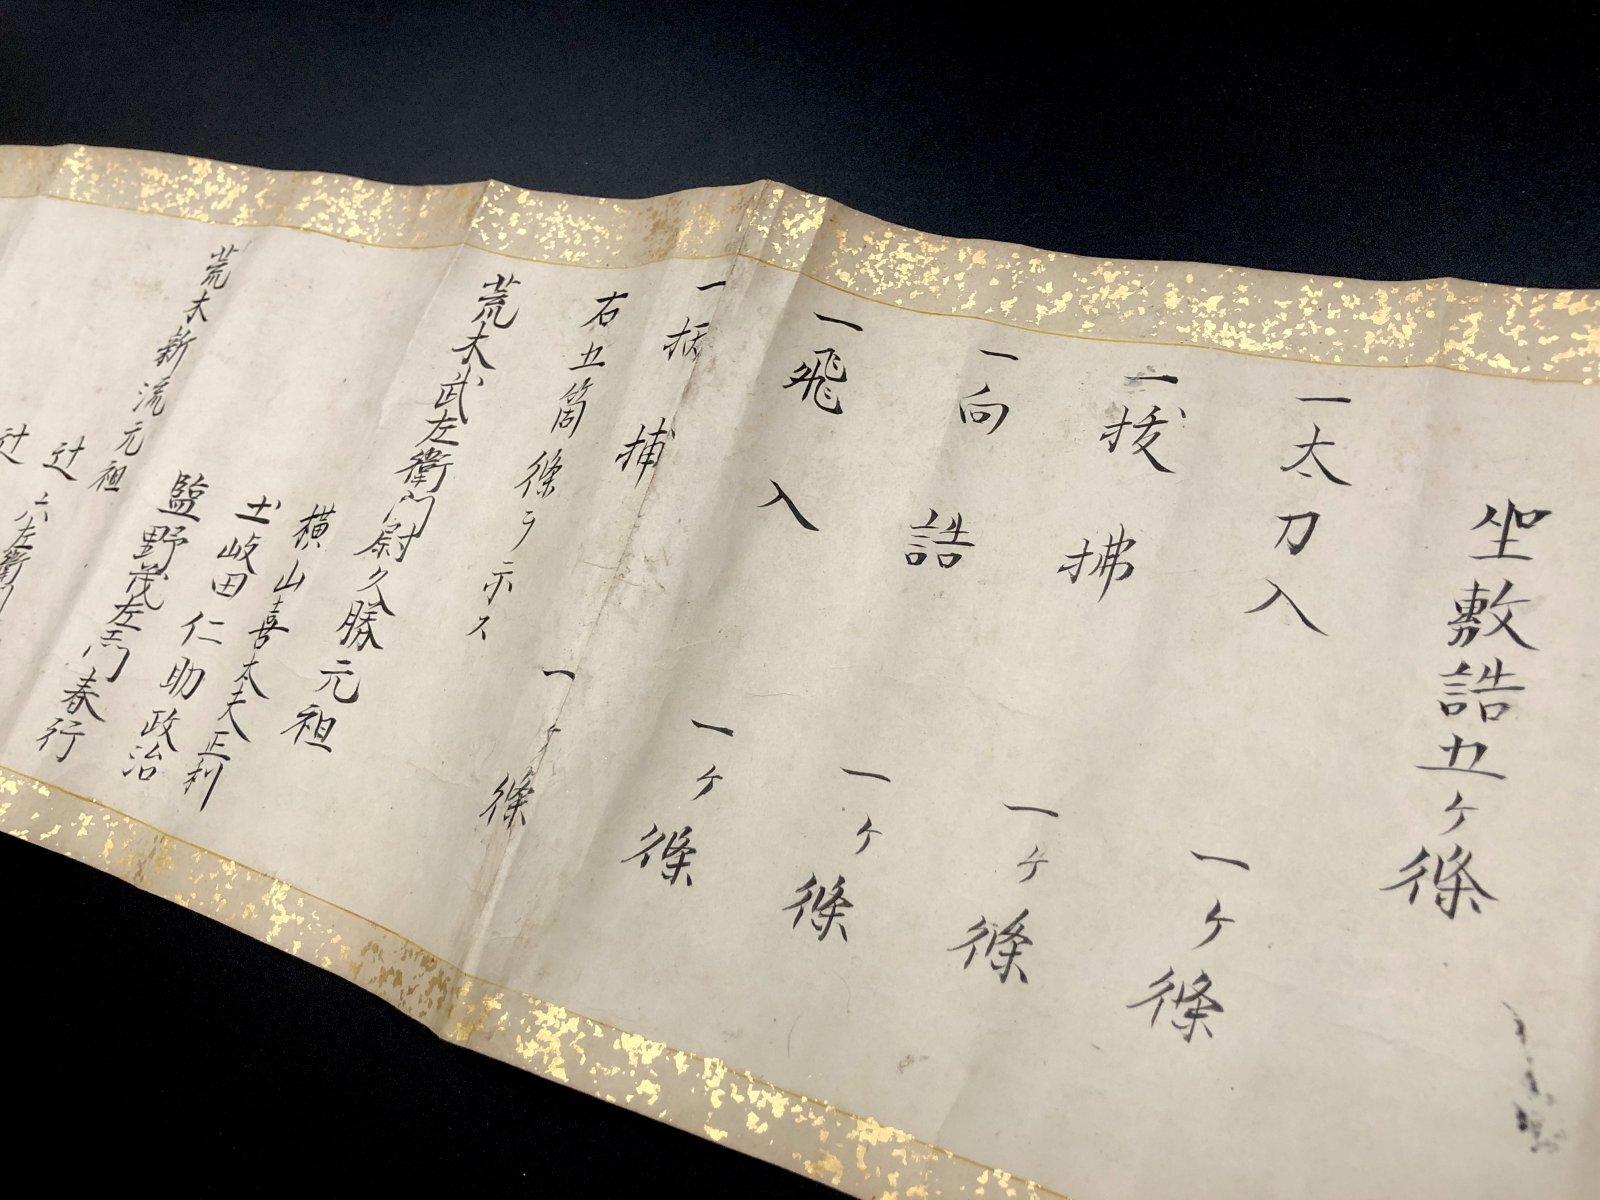 坐敷誥五ヶ條
一太刀入 一ヶ條
一拔拂 一ヶ條
一向誥 一ヶ條
一飛入 一ヶ條
一捕 一ヶ條
右五箇條ヲ示ス
荒木武左衛門尉久勝元祖
横山喜太夫正利
土岐田仁助政治
監野茂左衛門春行
荒木新流元祖
辻六左衛門
辻